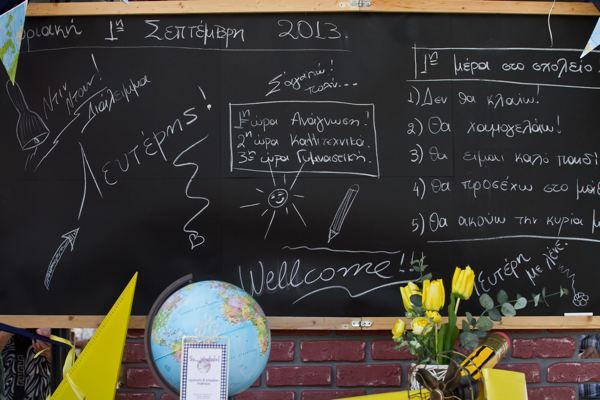 υριακή 1η Σεπτέμβρη 2013
Ντιν
Ντον!
Διάλειμμα
Λευτέρης!
Σ'αγαπώ!
1η ώρα Ανάγνωση!
2η ώρα Καλλιτεχνικά.
3η ώρα Γυμναστική.
Wellcome!
1η μέρα στο σχολείο
1) Δεν θα κλαίω!
2) Θα χαμογελάω!
3) Θα είμαι καλό παιδί
4) Θα προσέχω στο μάθ
5) Θα ακούω την κυρία μ
Λευτέρη
με λένε.